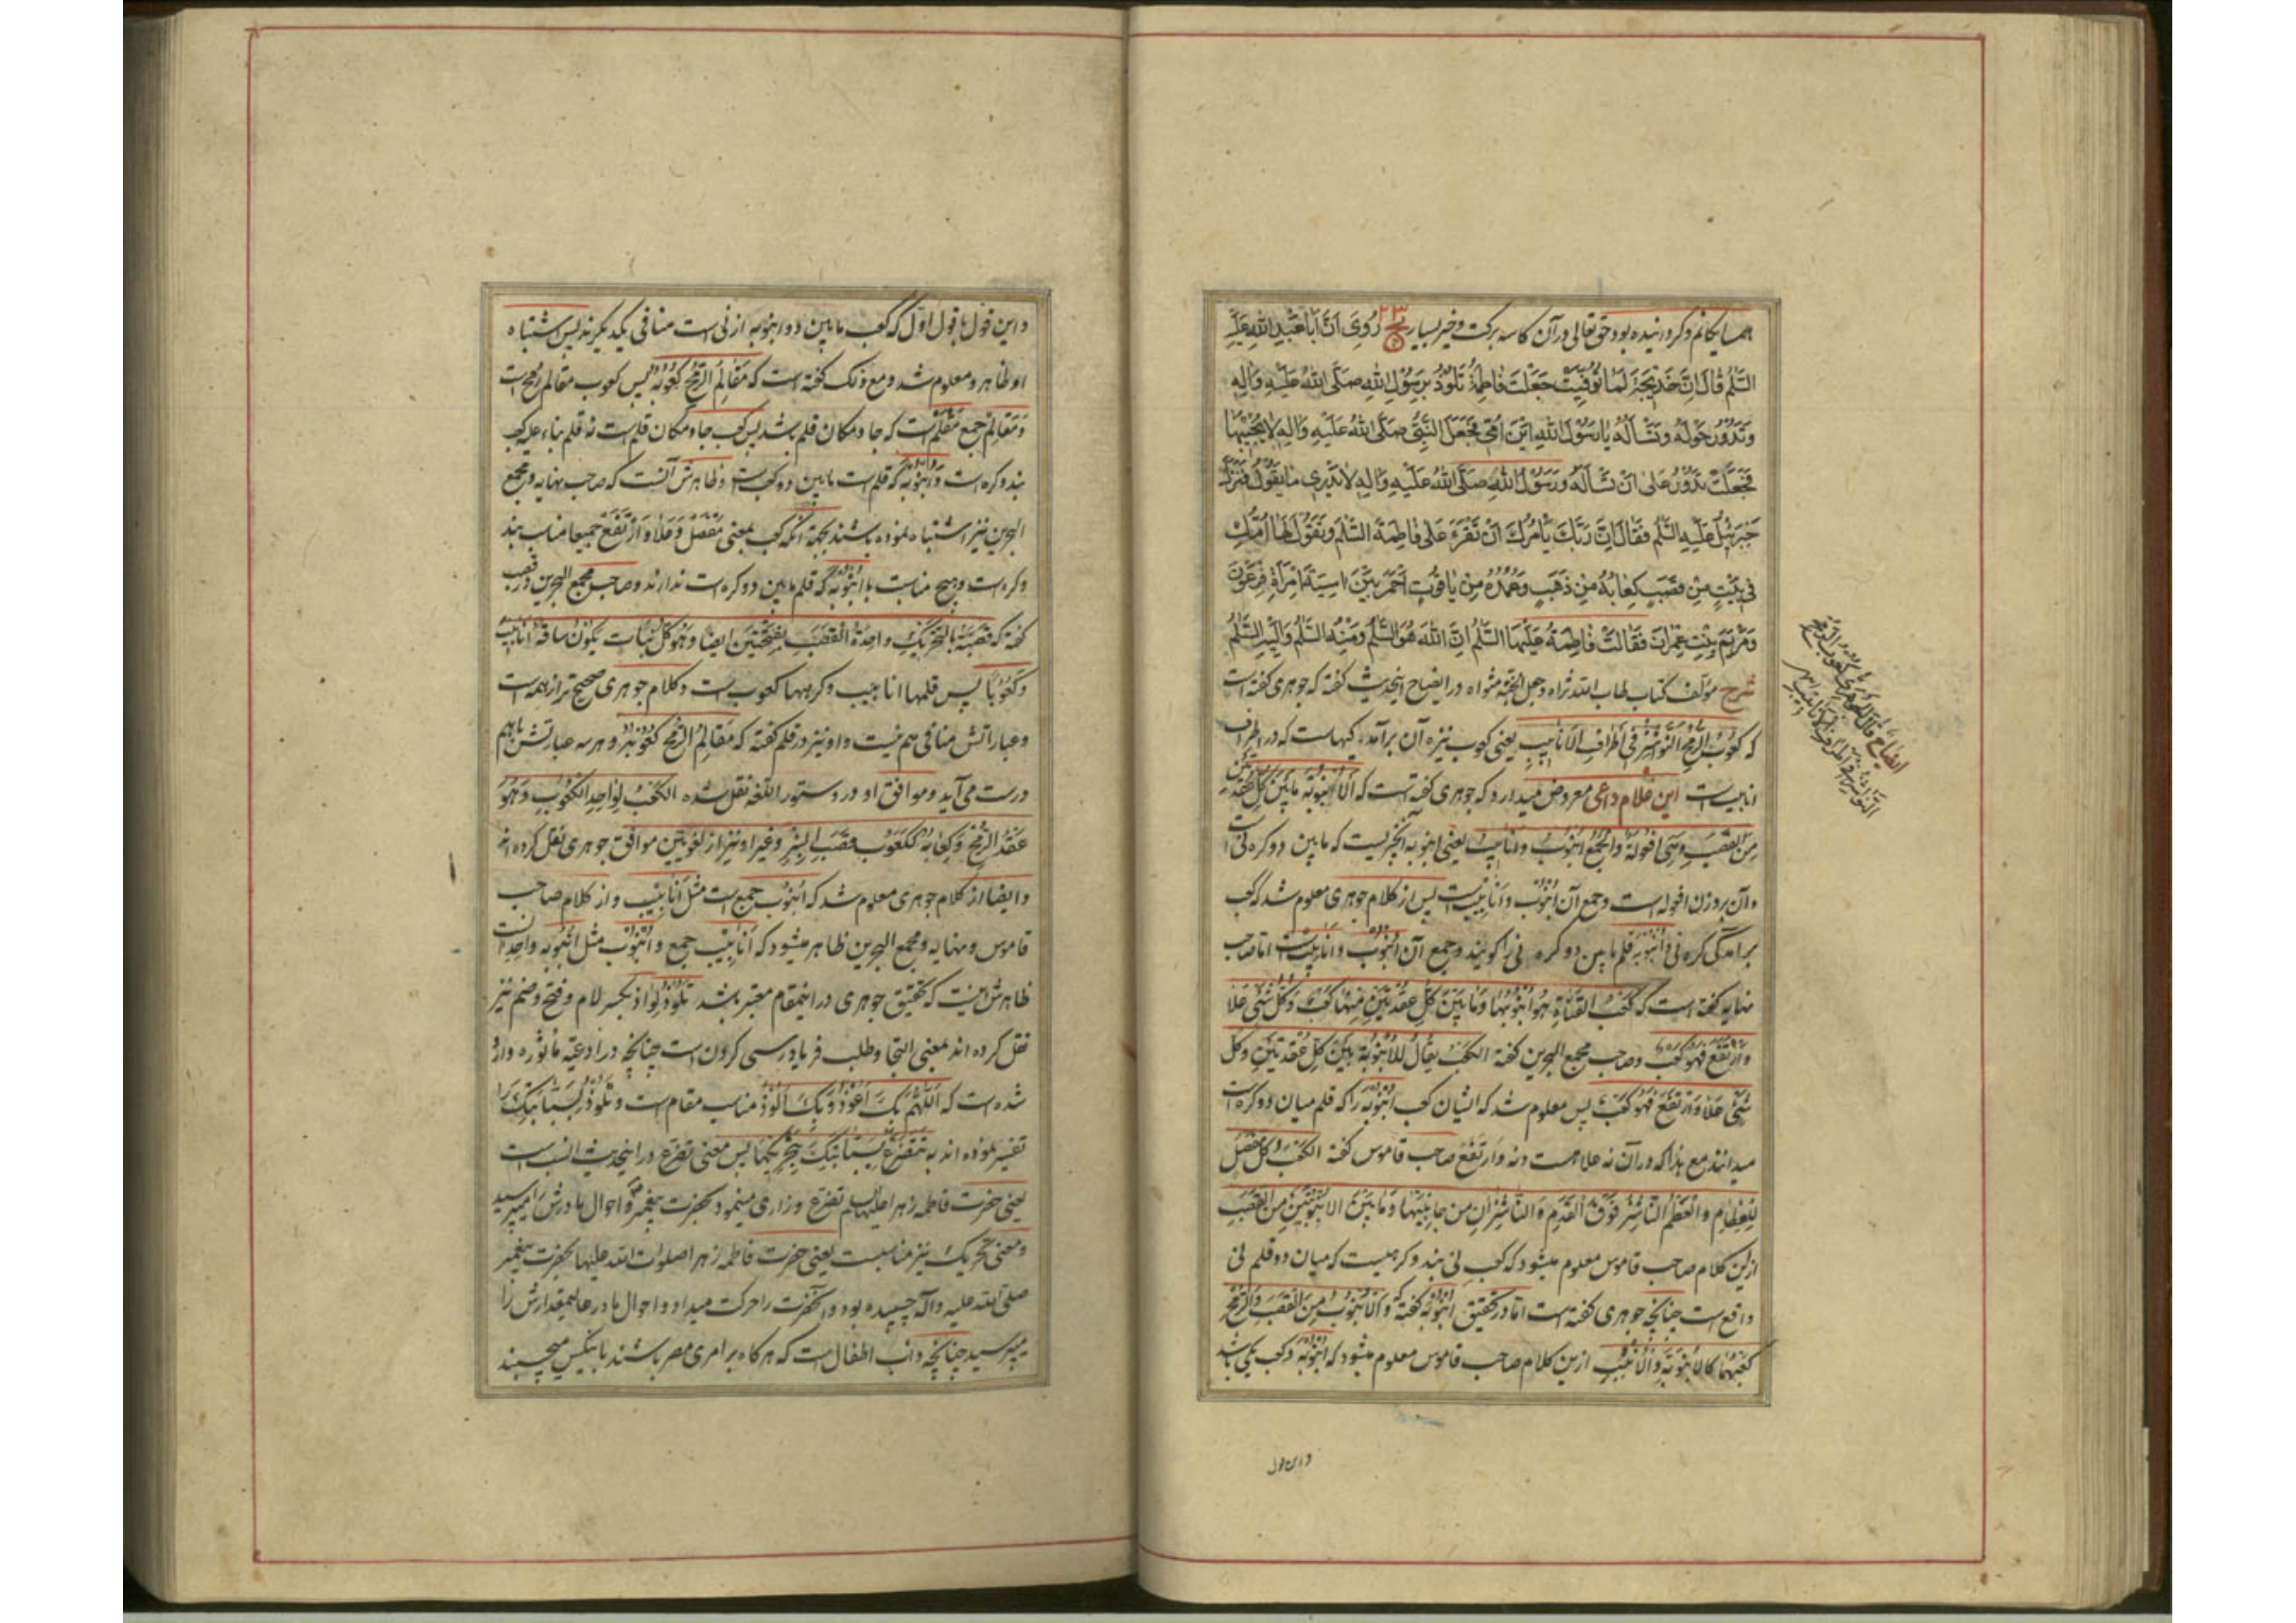 همسایگانم و کرورانیده بود و حق تعالی در آن کاسه برکت و خیر بسیار یج ۲۳ رُوِیَ اَنَّ اَبا عَبْدِ اللهِ عَلَیْهِ
السَّلمُ قالَ اِنَّ خَدیجَةَ لَمّا تُوُفِّیَتْ جَعَلَتْ فاطِمَةُ تَلُوذُ بِرَسُولِ اللهِ صَلَّی اللهُ عَلَیْهِ وَآلِهِ
وَتَدُورُ حَوْلَهُ وَتَسْاَلُهُ یا رَسُولَ اللهِ اَیْنَ اُمّی فَجَعَلَ النَّبِیُّ صَلَّی اللهُ عَلَیْهِ وَالِهِ لا یُجیبُها
فَجَعَلَتْ تَدُورُ عَلی اَنْ تَسْاَلَهُ وَرَسُولُ اللهِ صَلَّی اللهُ عَلَیْهِ وَالِهِ لا یَدْری ما یَقُولُ فَنَزَلَ
جَبْرَئیلُ عَلَیْهِ السَّلمُ فَقالَ اِنَّ رَبَّکَ یَأْمُرُکَ اَنْ تَقْرَءَ عَلی فاطِمَةَ السَّلمَ وَتَقُولَ لَها اِنَّ اُمَّکِ
فی بَیْتٍ مِنْ قَصَبٍ کِعابُهُ مِنْ ذَهَبٍ وَعُمُدُهُ مِنْ یاقُوتٍ اَحْمَرَ بَیْنَ اسِیَةَ امْرَاَةِ فِرْعَوْنَ
وَمَرْیَمَ بِنْتِ عِمْرانَ فَقالَتْ فاطِمَةُ عَلَیْهَا السَّلمُ اِنَّ اللهَ هُوَ السَّلمُ وَمِنْهُ السَّلمُ وَاِلَیْهِ السَّلمُ
شرح مؤلف کتاب طاب الله ثراه وجعل الجنة مثواه در ایضاح اینحدیث گفته که جوهری گفته است
که کُعُوبُ الرُّمْحِ النَّواشِزُ فی اَطْرافِ الاَنابیبِ یعنی کعوب نیزه آن برآمدگیهاست که در اطراف
انابیبست این غلام داعی معروض میدارد که جوهری گفته است که اَلاُنْبُوبَةُ ما بَیْنَ کُلِّ عُقْدَتَیْنِ
مِنَ القَصَبِ وَهِیَ اُفْعُولَةٌ وَالجَمْعُ اُنْبُوبٌ وَاَنابیبُ یعنی انبوبه آنچیزیست که مابین دو کره نی است
و آن بروزن افعوله است و جمع آن اُنْبُوب و اَنابیبست پس از کلام جوهری معلوم شد که کعب
برآمدگی کره نی و اُنْبُوبه قلم مابین دو کره نی را گویند و جمع آن اُنْبُوب و اَنابیبست اما صاحب
نهایه گفته است که کَعْبُ القَناةِ هُوَ اُنْبُوبُها وَما بَیْنَ کُلِّ عُقْدَتَیْنِ مِنْها کَعْبٌ وَکُلُّ شَیْءٍ عَلا
وَارْتَفَعَ فَهُوَ کَعْبٌ وصاحب مجمع البحرین گفته الکَعْبُ یُقالُ لِلاُنْبُوبَةِ بَیْنَ کُلِّ عُقْدَتَیْنِ وَکُلُّ
شَیْءٍ عَلا وَارْتَفَعَ فَهُوَ کَعْبٌ پس معلوم شد که ایشان کعب اُنْبُوبَه را که قلم میان دو کره است
میدانند مع هذا که در آن نه علا هست و نه وَارْتَفَعَ صاحب قاموس گفته الکَعْبُ کُلُّ مَفْصِلٍ
لِلْعِظامِ وَالعَظْمُ النّاشِزُ فَوْقَ القَدَمِ وَالنّاشِزانِ مِنْ جانِبَیْها وَما بَیْنَ الاُنْبُوبَتَیْنِ مِنَ القَصَبِ
از این کلام صاحب قاموس معلوم میشود که کعب نی بند و کرهیست که میان دو قلم نی
واقع است چنانچه جوهری گفته است اما در تحقیق اُنْبُوبَة گفته که وَالاُنْبُوبُ مِنَ القَصَبِ وَالرُّمْحِ
کَعْبُهُما کَالاُنْبُوبَةِ وَالاَنْبُبِ ازین کلام صاحب قاموس معلوم میشود که اُنْبُوبَة و کعب یکی باشد
و این قول
و این قول با قول اوّل که کعب مابین دو انبوبه از نی است منافی یکدیگرند پس اشتباه
او ظاهر و معلوم شد و مع ذلک گفته است که مَقالِمُ الرُّمْحِ کُعُوبُهُ پس کعوب مقالم رمح است
وَ مَقالِم جمع مِقْلَم است که جا و مکان قلم باشد پس کعب جا و مکان قلم است نه قلم بناء علیه کعب
بند و کره است و اُنْبُوبَه که قلم است مابین دو کعب است و ظاهرش آنست که صاحب نهایه و مجمع
البحرین نیز اشتباه نموده باشند بجهة آنکه کعب بمعنی مَفْصِل وَعَلا وَارْتَفَعَ جمیعا مناسب بند
و کره است و هیچ مناسبت با اُنْبُوبَه که قلم مابین دو کره است ندارند و صاحب مجمع البحرین در قصب
گفته که قَصَبَة بِالتَّحْریکِ واحِدَةُ القَصَبِ بِفَتْحَتَیْنِ ایضا وَهُوَ کُلُّ نَباتٍ یَکُونُ ساقُهُ اَنابیبَ
وَکُعُوباً پس قلمها انابیب و کرهها کعوب است و کلام جوهری صحیح تر از همه است
و عباراتش منافی هم نیست و او نیز در قلم گفته که مَقالِمُ الرُّمْحِ کُعُوبُهُ و هر سه عبارتش با هم
درست می‌آید و موافق او در دستور اللغه نقل شده الکَعْبُ لِواحِدِ الکُعُوبِ وَهُوَ
عُقَدُ الرُّمْحِ وغیر او نیز از لغویین موافق جوهری نقل کرده‌اند
و ایضا از کلام جوهری معلوم شد که اُنْبُوب جمع است مثل اَنابیب و از کلام صاحب
قاموس و نهایه و مجمع البحرین ظاهر میشود که اَنابیب جمع و اُنْبُوب مثل اُنْبُوبه واحد است
ظاهرش اینست که تحقیق جوهری در اینمقام معتبر باشد تَلُوذُ لِواذ بکسر لام و فتح و ضم نیز
نقل کرده‌اند بمعنی التجا و طلب فریادرسی کردن است چنانچه در ادعیه مأثوره وارد
شده است که اَللّهُمَّ بِکَ اَعُوذُ وَبِکَ اَلُوذُ مناسب مقام است و تَلُوذُ بِسَبّابَتِکَ را
تفسیر نموده‌اند به تَتَضَرَّعُ بِسَبّابَتِکَ پس معنی تضرع در اینحدیث انسب است
یعنی حضرت فاطمه زهرا علیها السلم تضرع و زاری مینمود بحضرت پیغمبر و احوال مادرش را میپرسید
و معنی تحریک نیز مناسبست یعنی حضرت فاطمه زهرا صلوات الله علیها بحضرت پیغمبر
صلی الله علیه و آله چسپیده بود و آنحضرت را حرکت میداد و احوال مادر عالیمقدارش را
میپرسید چنانچه دأب اطفال است که هرگاه بر امری مصر باشند بآنکس میچسپند